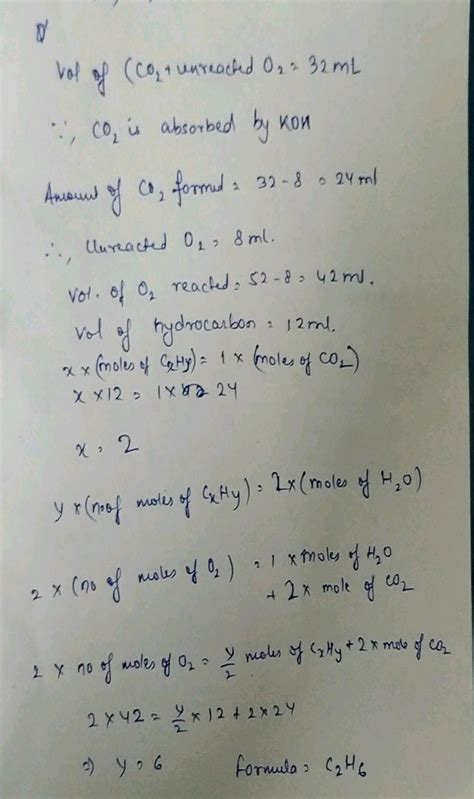 Vol of (CO₂ + unreacted O₂ = 32 mL
∵, CO₂ is absorbed by KOH
Amount of CO₂ formed = 32 - 8 = 24 ml
∴, Unreacted O₂ = 8 ml.
Vol. of O₂ reacted = 52 - 8 = 42 ml.
Vol of hydrocarbon = 12 ml.
x × (moles of CxHy) = 1 × (moles of CO₂)
x × 12 = 1 × 24
x = 2
y × (no of moles of CxHy) = 2 × (moles of H₂O)
2 × (no of moles of O₂) = 1 × moles of H₂O
+ 2 × mole of CO₂
2 × no of moles of O₂ = y/2 moles of CxHy + 2 × mole of CO₂
2 × 42 = y/2 × 12 + 2 × 24
⇒ y = 6 formula = C₂H₆